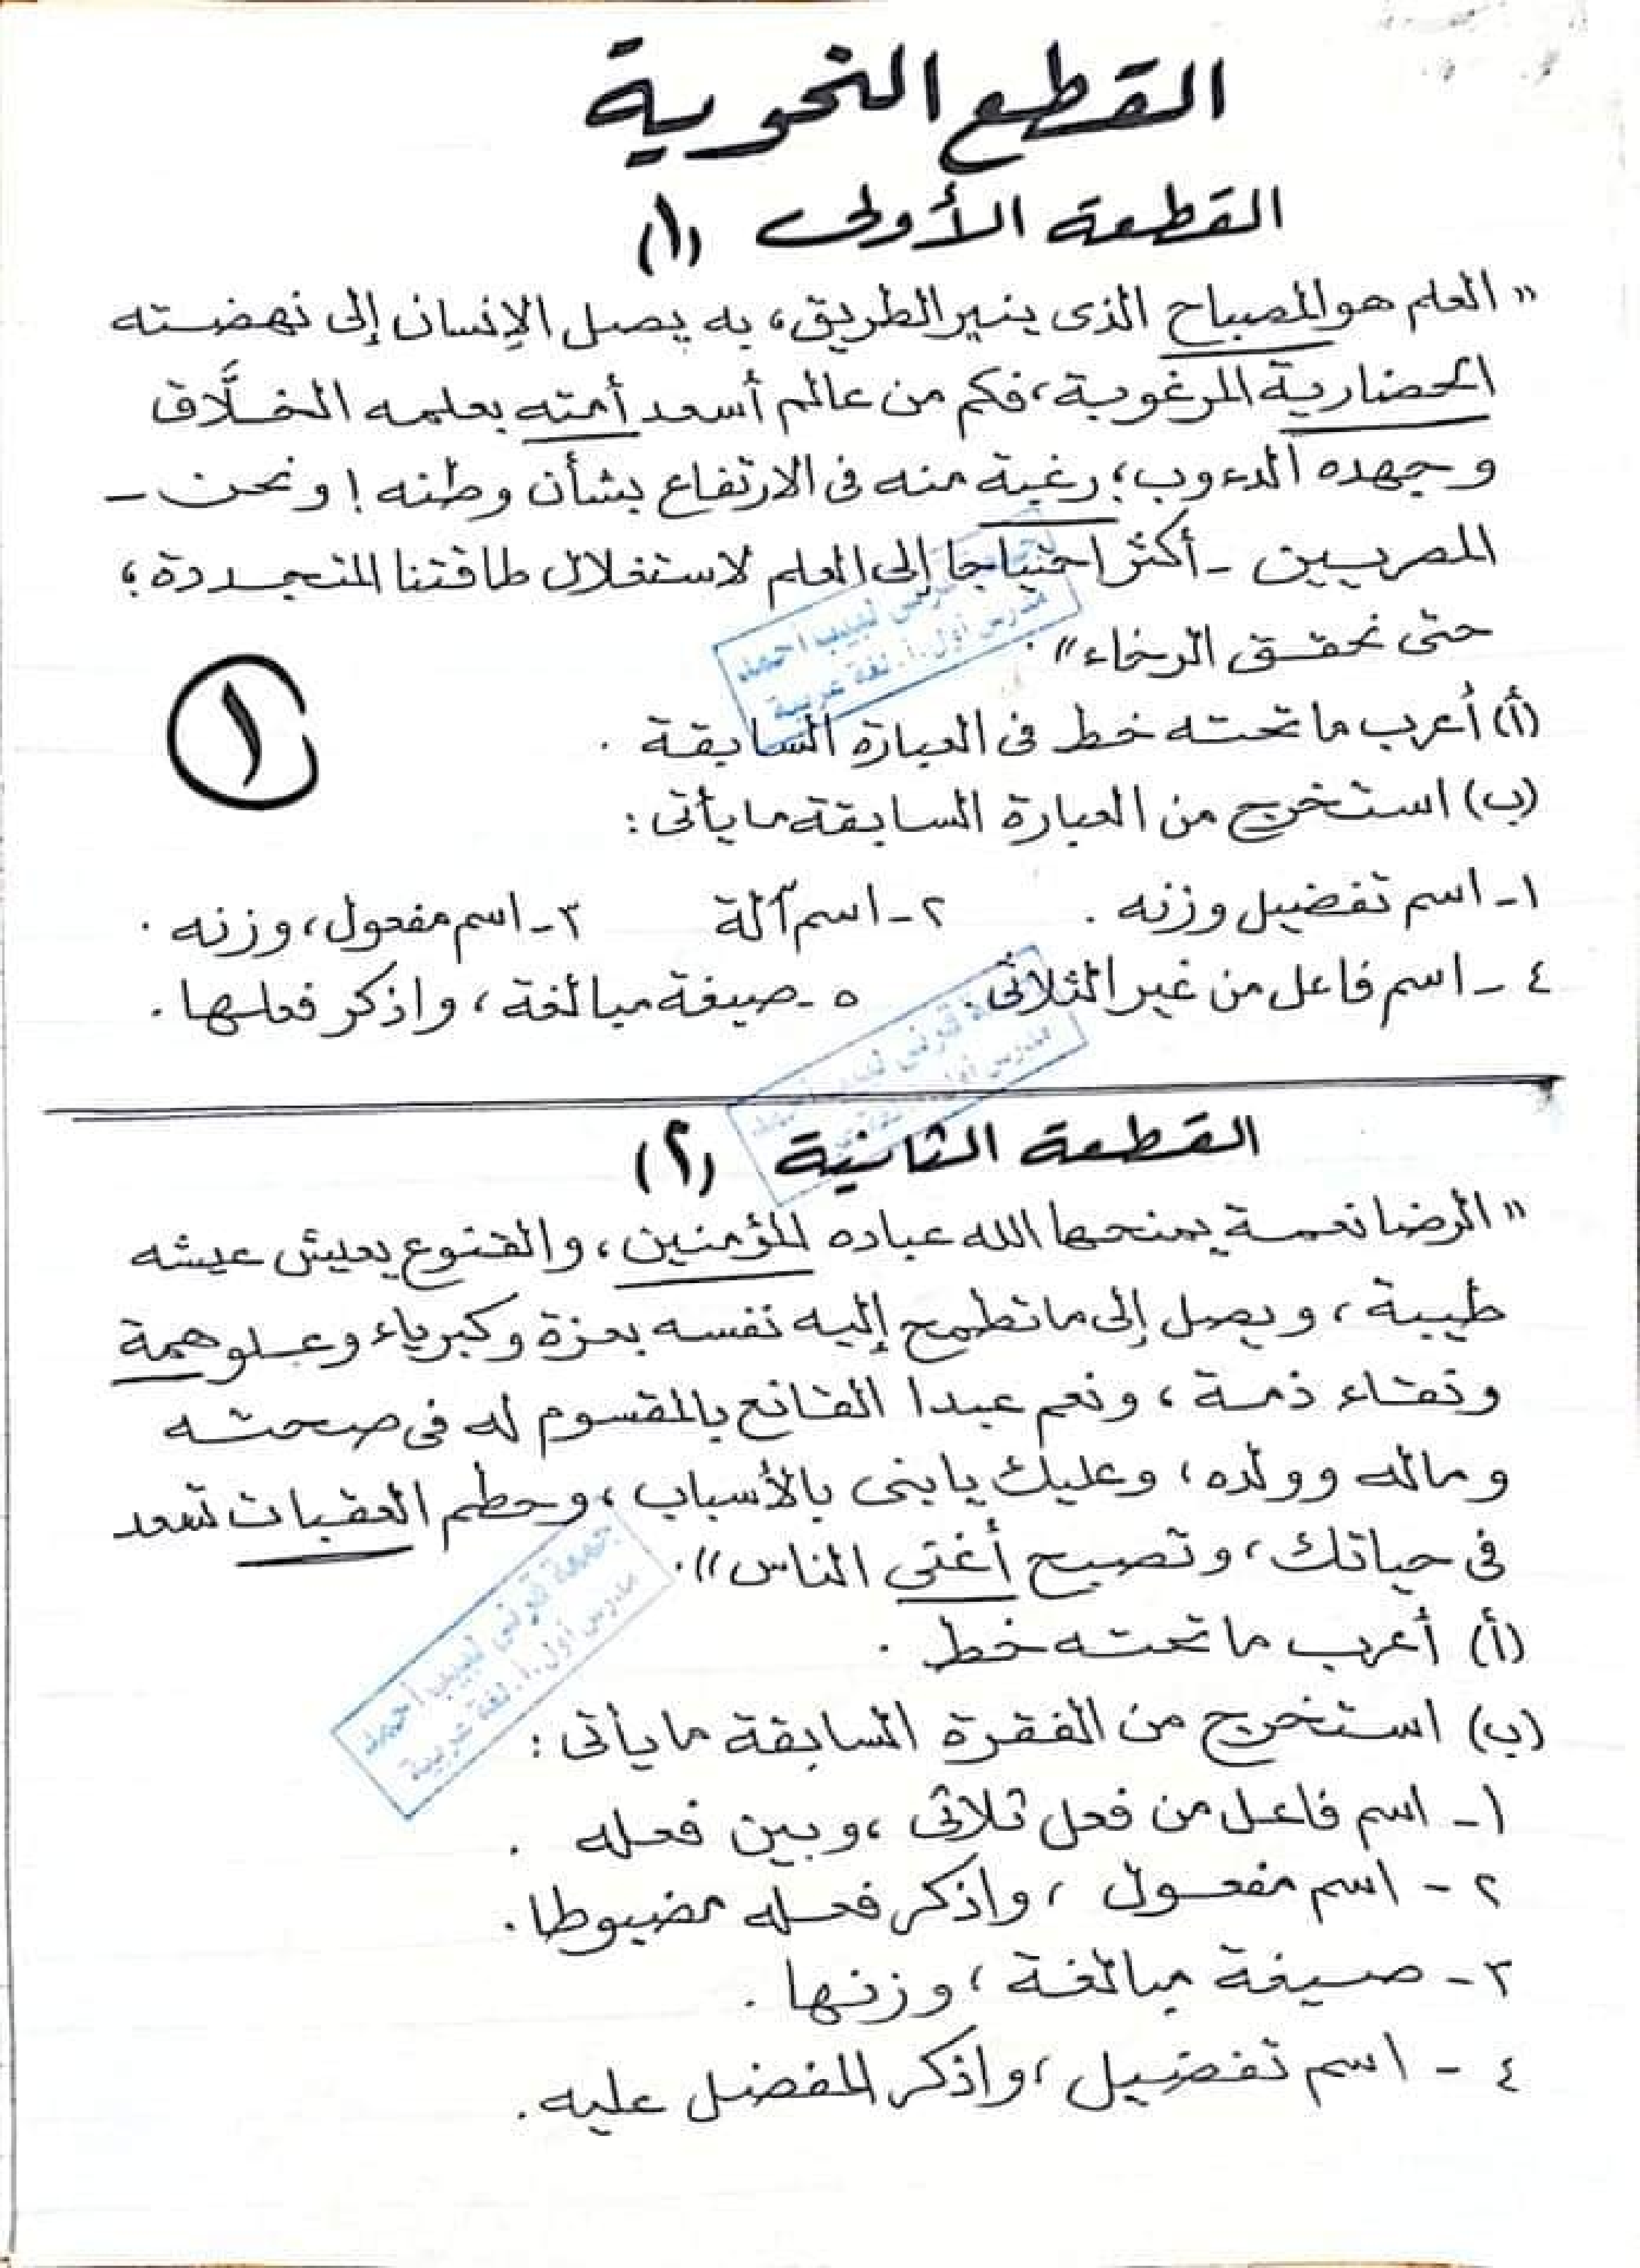 القطع النحوية
القطعة الأولى (١)
" العلم هو المصباح الذى ينير الطريق، به يصل الإنسان إلى نهضته
الحضارية المرغوبة، فكم من عالم أسعد أمته بعلمه الخلَّاق
وجهده الدءوب؛ رغبة منه فى الارتفاع بشأن وطنه! ونحن -
المصريين - أكثر احتياجا إلى العلم لاستغلال طاقتنا المتجددة؛
حتى نحقق الرخاء".
(أ) أعرب ما تحته خط فى العبارة السابقة.
١
(ب) استخرج من العبارة السابقة ما يأتى:
١- اسم تفضيل وزنه. ٢- اسم آلة ٣- اسم مفعول، وزنه.
٤- اسم فاعل من غير الثلاثى. ٥- صيغة مبالغة، واذكر فعلها.
القطعة الثانية (٢)
" الرضا نعمة يمنحها الله عباده المؤمنين، والقنوع يعيش عيشه
طيبة، ويصل إلى ما تطمح إليه نفسه بعزة وكبرياء وعلو همة
ونقاء ذمة، ونعم عبدا القانع بالمقسوم له فى صحته
وماله وولده، وعليك يا بنى بالأسباب، وحطم العقبات تسعد
فى حياتك، وتصبح أغنى الناس".
(أ) أعرب ما تحته خط.
(ب) استخرج من الفقرة السابقة ما يأتى:
١- اسم فاعل من فعل ثلاثى، وبين فعله.
٢- اسم مفعول، واذكر فعله مضبوطا.
٣- صيغة مبالغة، وزنها.
٤- اسم تفضيل، واذكر المفضل عليه.
لبيب أحمد
مدرس أول.أ.لغة عربية
جمعة قرنى لبيب أحمد
مدرس أول.أ.لغة عربية